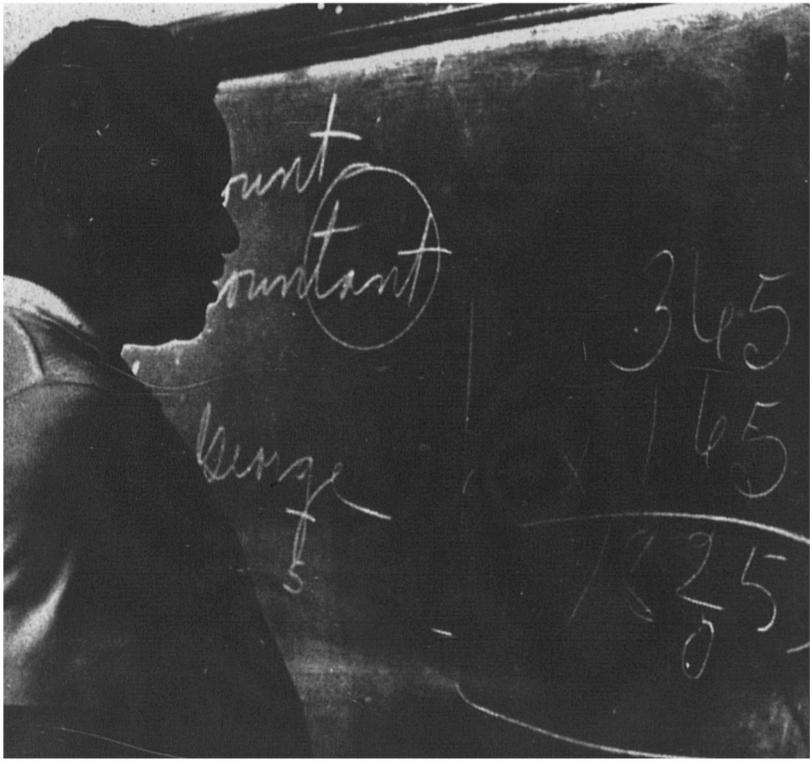 ount
ountant
George
5
345
x 165
1825
0